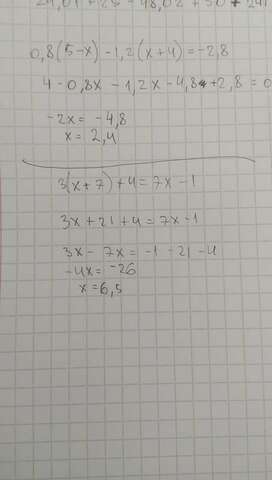 24,01 + 25 - 48,02 + 50 + 241
0,8(5-x) - 1,2(x+4) = -2,8
4 - 0,8x - 1,2x - 4,8 + 2,8 = 0
-2x = -4,8
x = 2,4
3(x+7) + 4 = 7x - 1
3x + 21 + 4 = 7x - 1
3x - 7x = -1 - 21 - 4
-4x = -26
x = 6,5